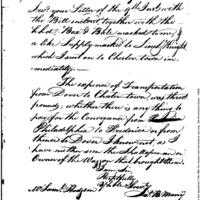 your Letter of the 9th Inst. with
the Bill inclosed together with the
Hhd. & Box marked to me &
a like Supply marked to
which I sent on to Chester town im-
mediately.
The expence of Transportation
from Dover to Chester town, was three
pounds, whether is any thing to
pay for the Conveyance from
Philadelphia to or from
thence to Dover I know not as
I have neither seen the Shallopman or
Owner of the Waggon that brought them.
I am
Respectfully
Yr. Hble Servt
Mr. Saml. Hodgdon